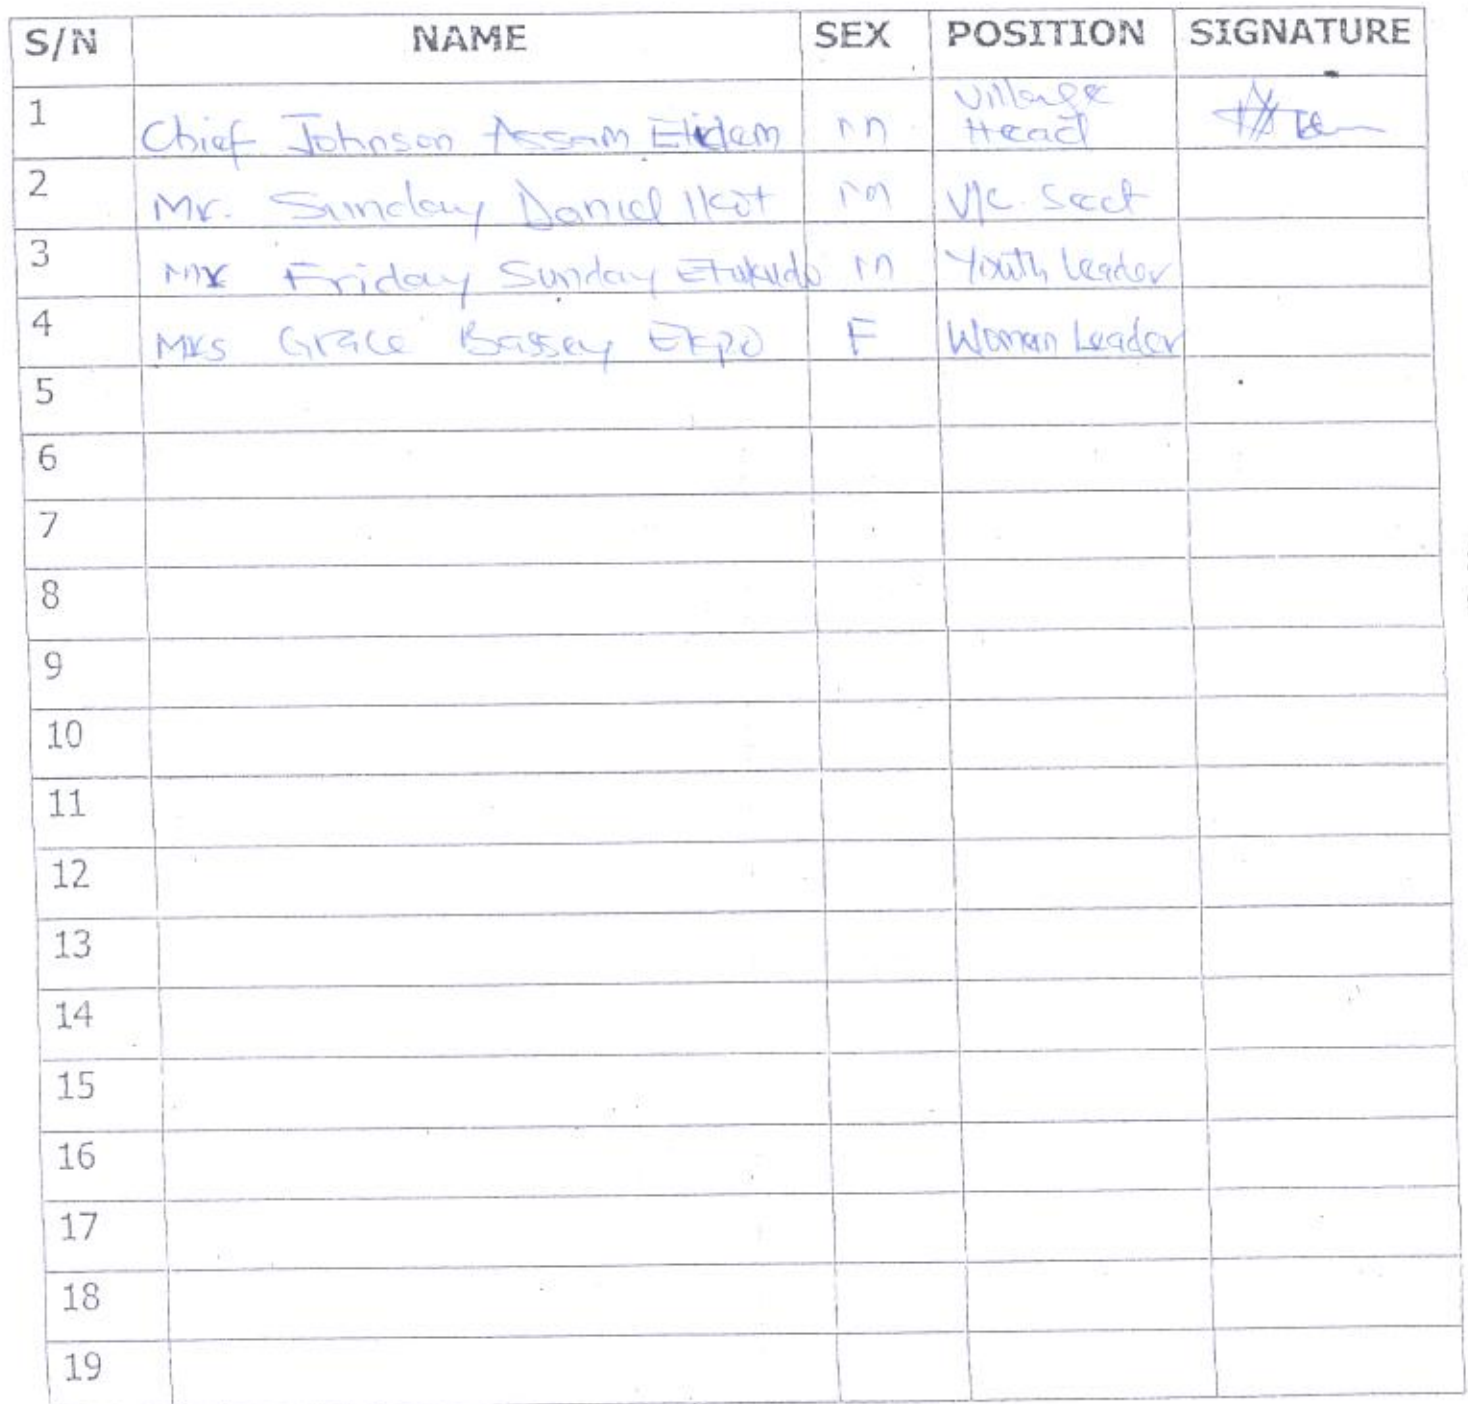 S/N NAME SEX POSITION SIGNATURE
1 Chief Johnson Assam m Village Head
2 Mr. Sunday Daniel Ikot m V/C. Sect
3 Mr Friday Sunday Etukudo m Youth Leader
4 Mrs Grace Bassey Ekpo F Woman Leader
5
6
7
8
9
10
11
12
13
14
15
16
17
18
19